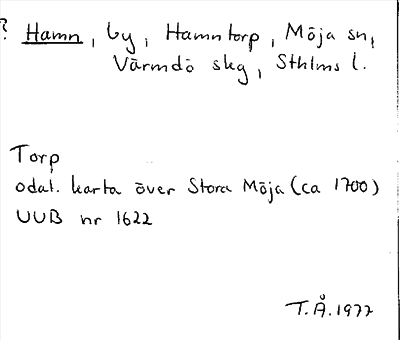 ? Hamn, by, Hamntorp, Möja sn,
Värmdö skg, Sthlms l.
Torp
odat. karta över Stora Möja (ca 1700)
UUB nr 1622
T.Å. 1977